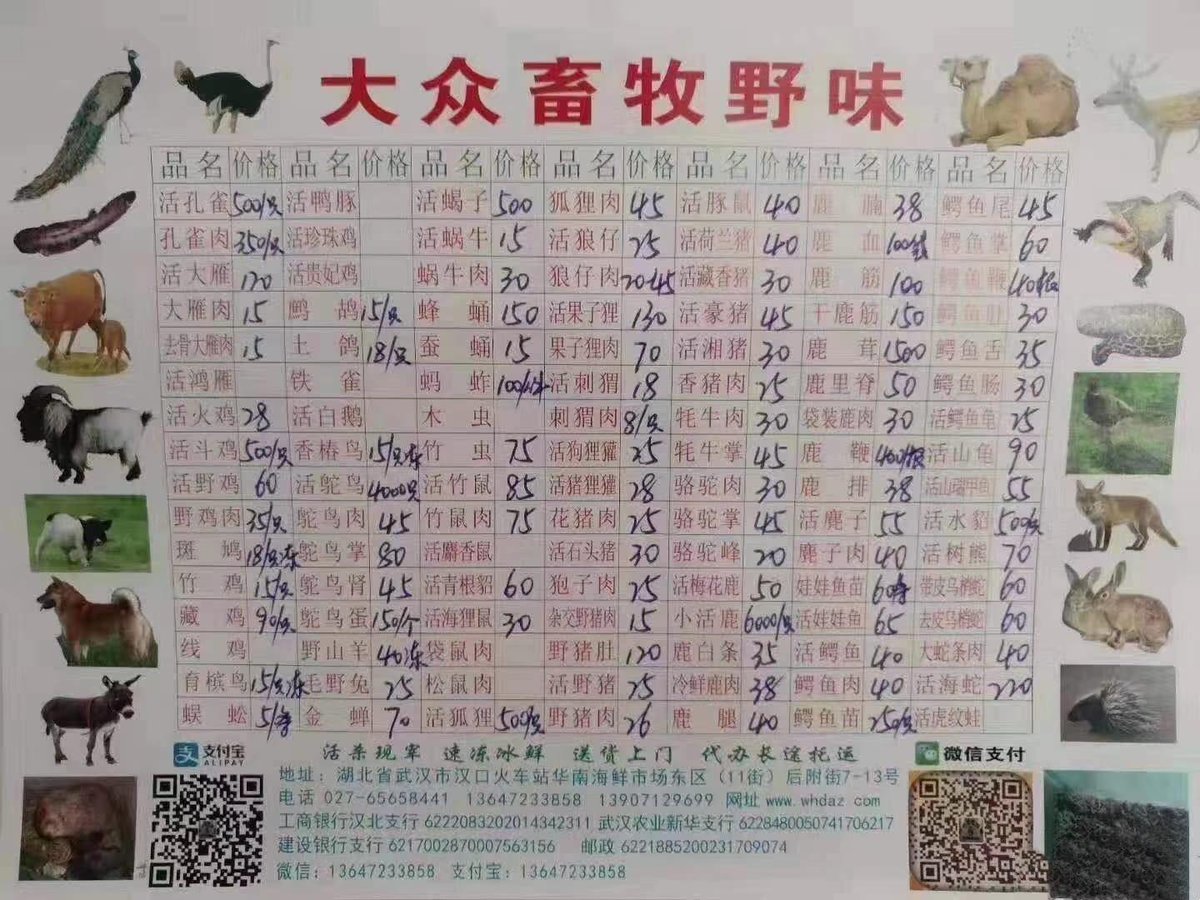 大众畜牧野味
品名 价格 品名 价格 品名 价格 品名 价格 品名 价格 品名 价格 品名 价格
活孔雀 500/只 活鸭豚 活蝎子 500 狐狸肉 45 活豚鼠 40 鹿腩 38 鳄鱼尾 45
孔雀肉 350/只 活珍珠鸡 活蜗牛 15 活狼仔 25 活荷兰猪 40 鹿血 100 鳄鱼掌 60
活大雁 120 活贵妃鸡 蜗牛肉 30 狼仔肉 20-45 活藏香猪 30 鹿筋 100 鳄鱼鞭 40
大雁肉 15 鹧鸪 15/只 蜂蛹 150 活果子狸 130 活豪猪 45 干鹿筋 150 鳄鱼肚 30
去骨大雁肉 15 土鸽 18/只 蚕蛹 15 果子狸肉 70 活湘猪 30 鹿茸 1500 鳄鱼舌 35
活鸿雁 铁雀 蚂蚱 100 活刺猬 18 香猪肉 25 鹿里脊 50 鳄鱼肠 30
活火鸡 28 活白鹅 木虫 刺猬肉 8/只 牦牛肉 30 袋装鹿肉 30 活鳄鱼龟 25
活斗鸡 500/只 香椿鸟 15/只冻 竹虫 75 活狗狸獾 25 牦牛掌 45 鹿鞭 400/根 活山龟 90
活野鸡 60 活鸵鸟 4000只 活竹鼠 85 活猪狸獾 28 骆驼肉 30 鹿排 38 活山瑞甲鱼 55
野鸡肉 35/只 鸵鸟肉 45 竹鼠肉 75 花猪肉 25 骆驼掌 45 活麂子 55 活水貂 500/只
斑鸠 18/只冻 鸵鸟掌 80 活麝香鼠 活石头猪 30 骆驼峰 20 麂子肉 40 活树熊 70
竹鸡 15/只 鸵鸟肾 45 活青根貂 60 狍子肉 25 活梅花鹿 50 娃娃鱼苗 60 带皮乌梢蛇 60
藏鸡 90/只 鸵鸟蛋 150/个 活海狸鼠 30 杂交野猪肉 15 小活鹿 6000/只 活娃娃鱼 65 去皮乌梢蛇 60
线鸡 野山羊 40冻 袋鼠肉 野猪肚 120 鹿白条 35 活鳄鱼 40 大蛇条肉 40
育槟鸟 15/只冻 毛野兔 25 松鼠肉 活野猪 25 冷鲜鹿肉 38 鳄鱼肉 40 活海蛇 220
蜈蚣 5/条 金蝉 70 活狐狸 500/只 野猪肉 26 鹿腿 40 鳄鱼苗 250/只 活虎纹蛙
支付宝 ALIPAY 活杀现宰 速冻冰鲜 送货上门 代办长途托运 微信支付
地址：湖北省武汉市汉口火车站华南海鲜市场东区（11街）后附街7-13号
电话 027-65658441 13647233858 13907129699 网址 www.whdaz.com
工商银行汉北支行 6222083202014342311 武汉农业新华支行 6228480050741706217
建设银行支行 6217002870007563156 邮政 6221885200231709074
微信：13647233858 支付宝：13647233858